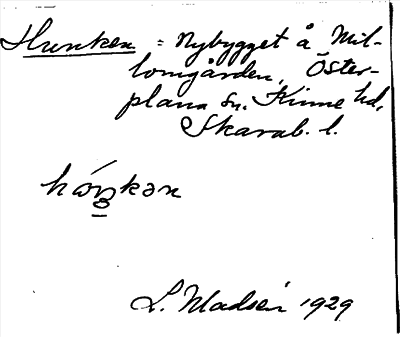 Hunken = Nybygget å Mel-
lomgården, Öster-
plana sn. Kinne hd,
Skarab. l.
L. Madsén 1929